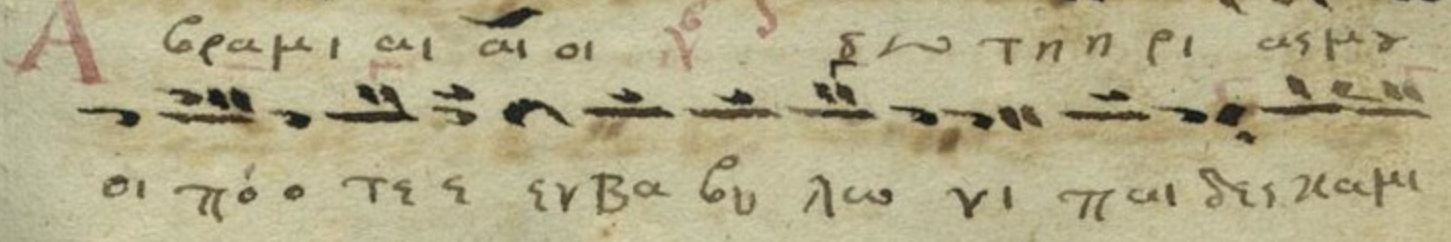 Α βραμι αι αι οι σω τη η ρι ας μȣ
οι πό ο τε ε εν Βα βυ λω νι παι δες καμι